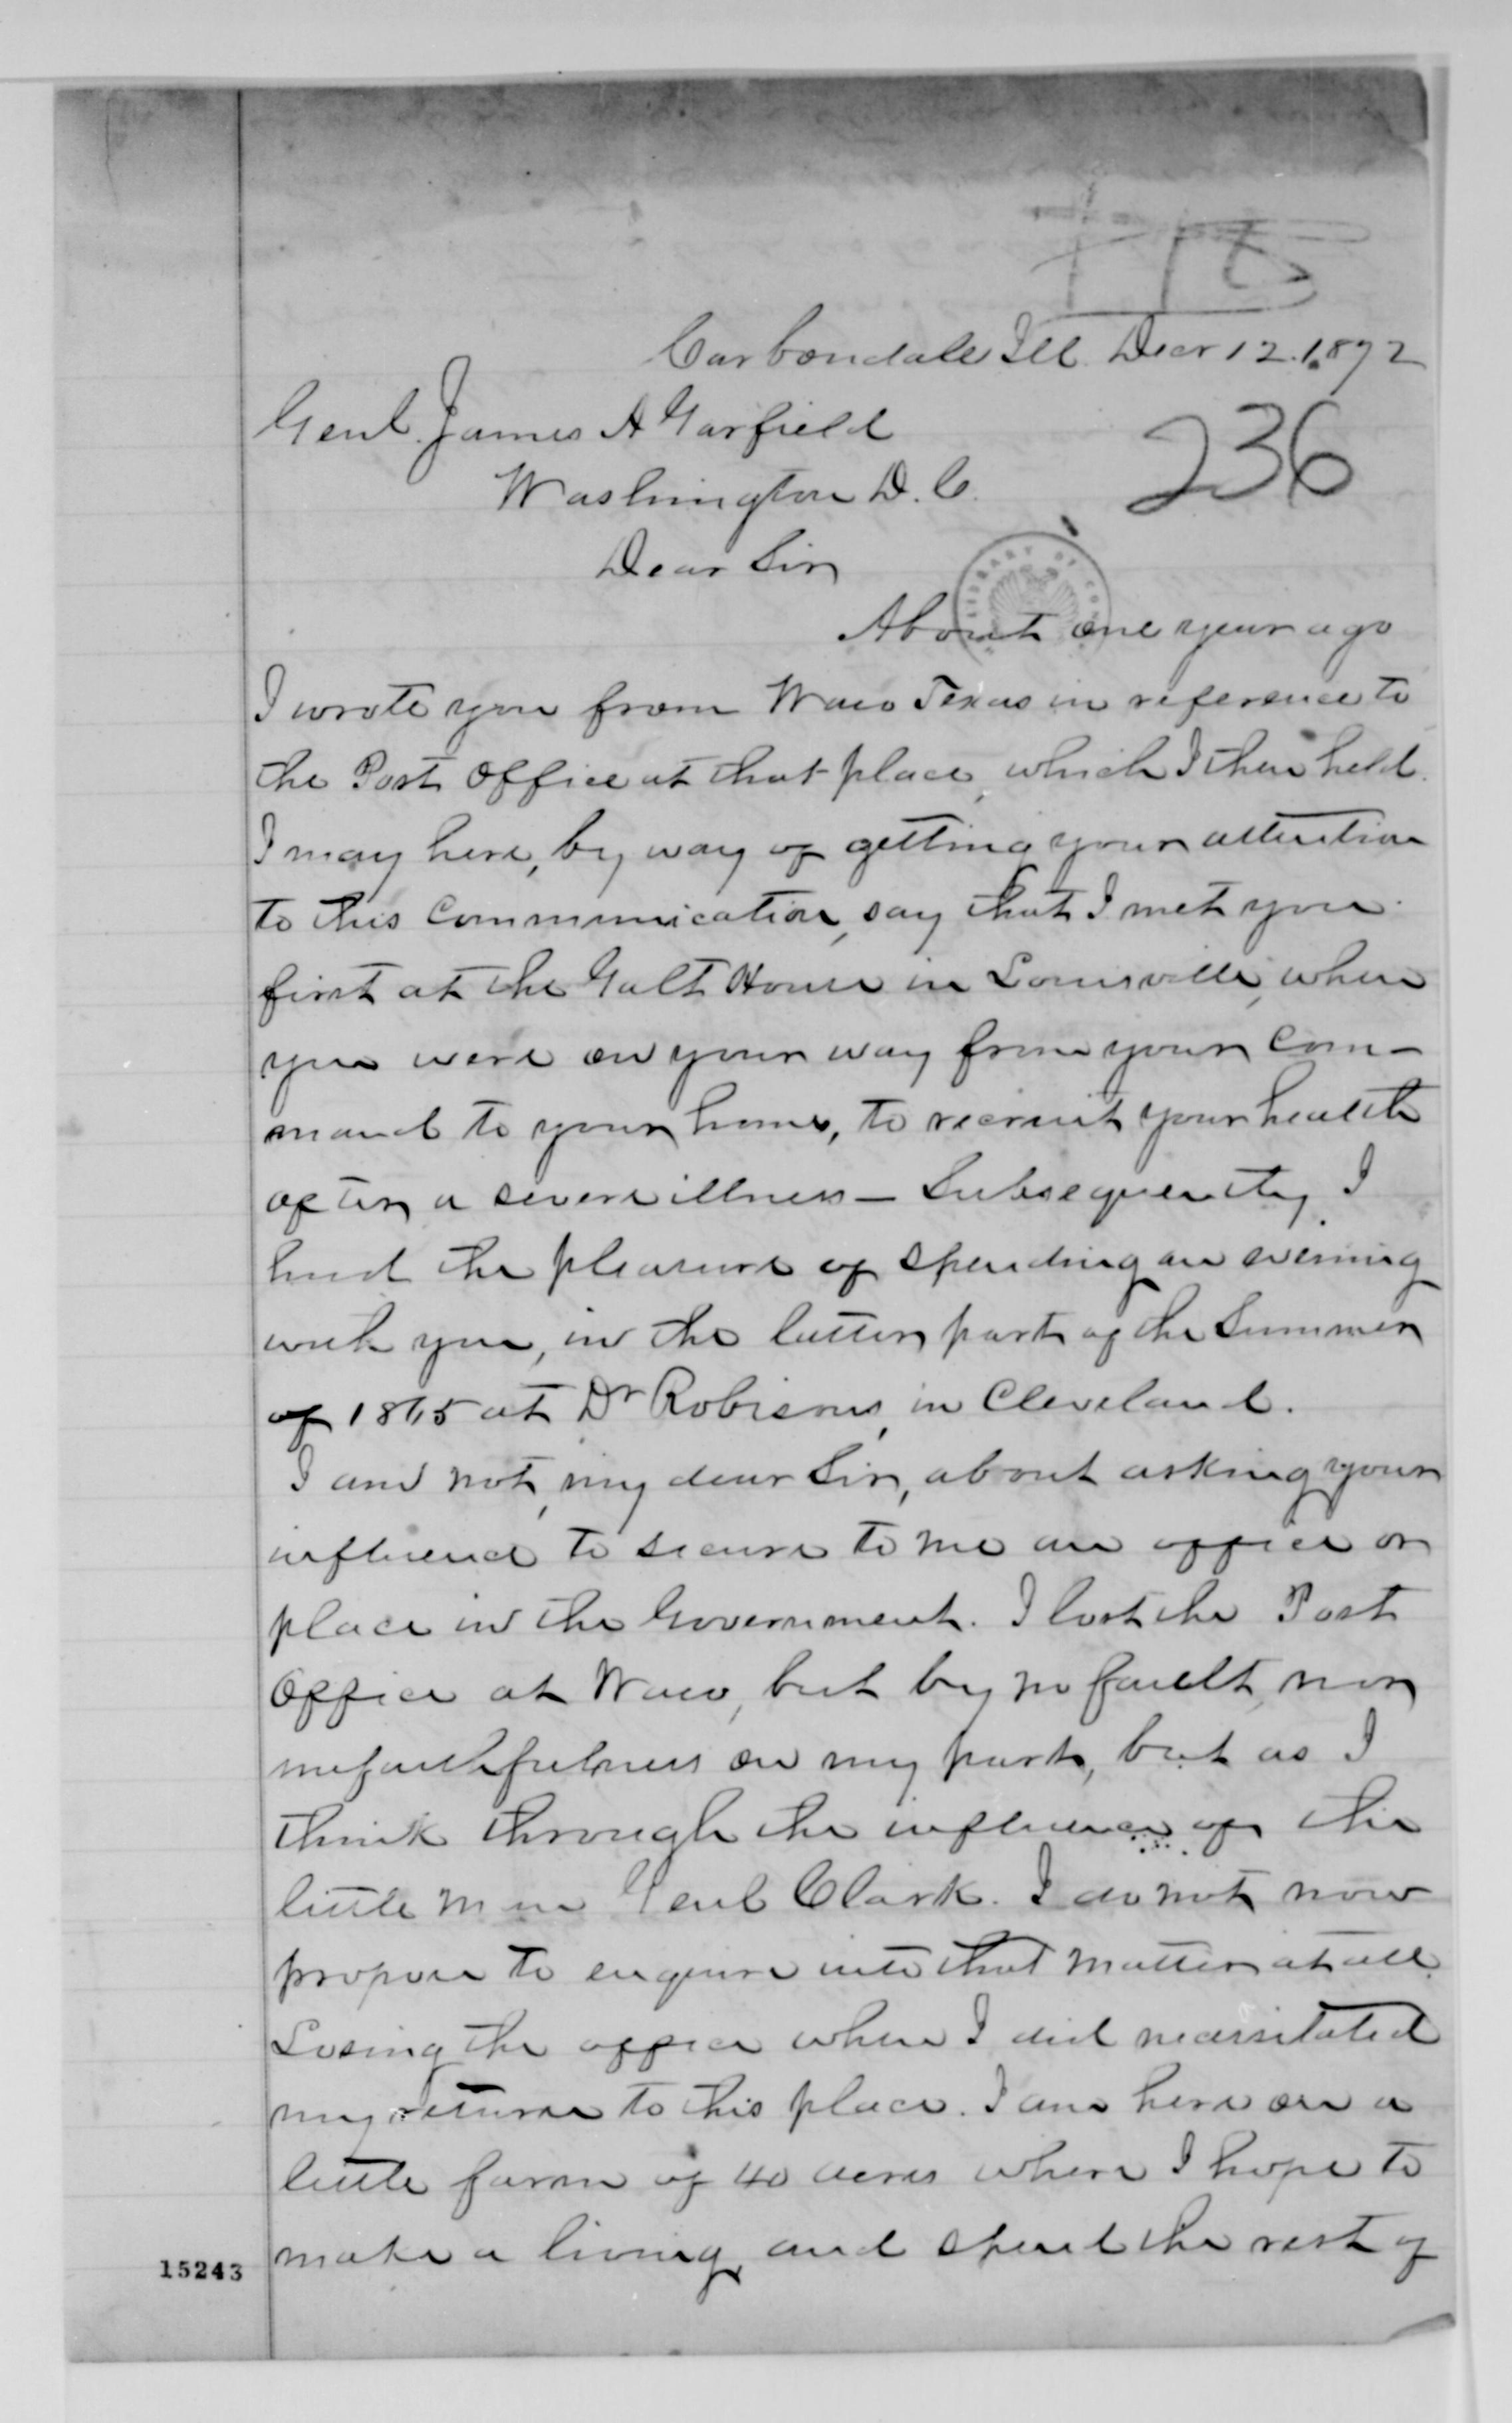 Carbondale Ill. Decr 12. 1872
Genl. James A Garfield
236
Washington D. C.
Dear Sir
LIBRARY OF CON
About one year ago
I wrote you from Waco Texas in reference to
the Post Office at that place, which I then held.
I may here, by way of getting your attention
to this communication, say that I met you
first at the Galt House in Louisville, when
you were on your way from your com-
mand to your home, to recruit your health
after a severe illness – Subsequently I
had the pleasure of spending an evening
with you, in the latter part of the Summer
of 1865 at Dr Robisons, in Cleveland.
I am not, my dear Sir, about asking your
influence to secure to me an office or
place in the Government. I lost the Post
Office at Waco, but by no fault, nor
unfaithfulness on my part, but as I
think through the influence of the
little man Genl Clark. I do not now
propose to enquire into that matter at all.
Losing the office when I did necessitated
my return to this place. I am here on a
little farm of 40 acres where I hope to
make a living, and spend the rest of
15243